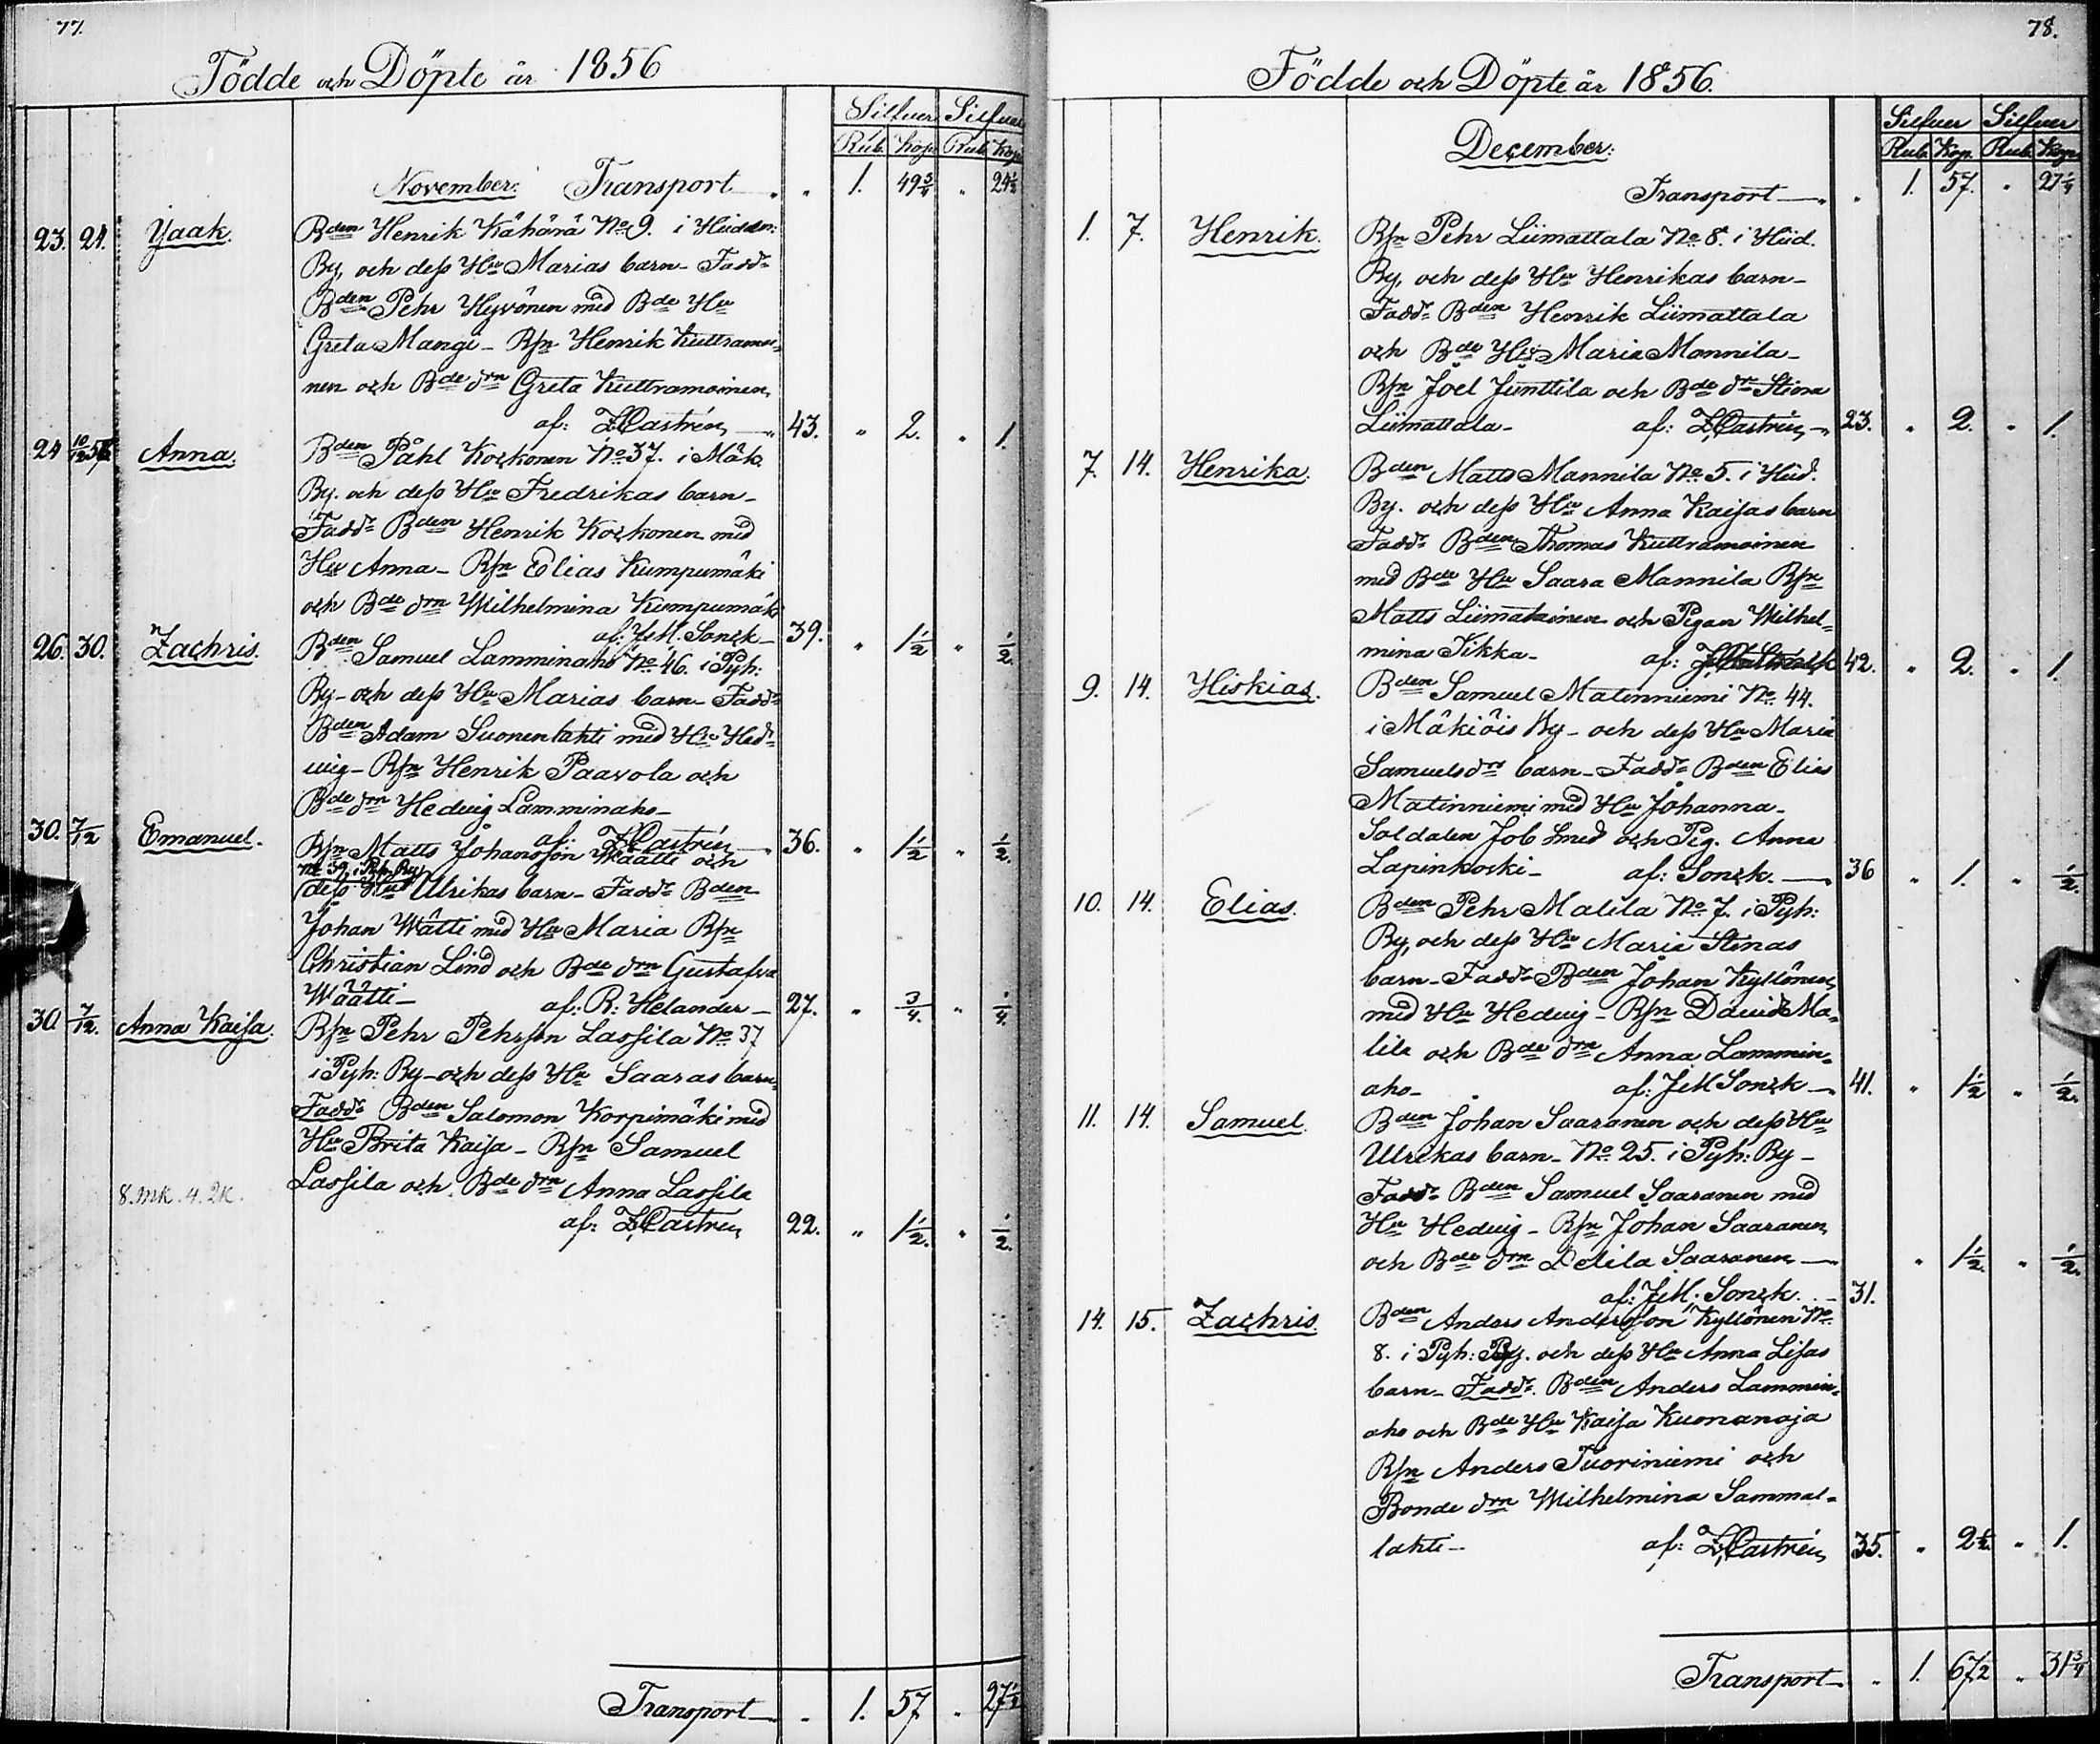 77.
Födde och Döpte år 1856
Silfuer Silfuer
Rub. Kop. Rub. Kop.
November: Transport " 1. 49¾ " 24½
23. 24. Isaak. Bden Henrik Kähärä No 9. i Hiiden:
By, och dess Hu Marias barn - Fadd:
Bden Pehr Hyvönen med Bde Hu
Greta Mangi - Rsn Henrik Kuttramoi=
nen och Bde drn Greta Kuttramoinen,
af: Z,Castrén, 43. " 2. " 1.
24 10/12 56 Anna. Bden Påhl Koskonen No 37. i Mäk.
By. och dess Hu Fredrikas barn -
Fadd: Bden Henrik Koskonen med
Hu Anna - Rsn Elias Kumpumäki
och Bde drn Wilhelmina Kumpumäki
af: J.M. Sonck - 39. " 1½ " ½
26. 30. Zachris. Bden Samuel Lamminaho No 46. i Pyh:
By - och dess Hu Marias barn - Fadd:
Bden Adam Suonenlahti med Hu Hed=
uig - Rsn Henrik Paavola och
Bde drn Heduig Lamminaho -
af: Z,Castrén, 36. " 1½ " ½.
30. 7/12 Emanuel. Rsn Matts Johansson Wäätti och
No 39 i Pyh. By
dess Hu Ulrikas barn - Fadd: Bden
Johan Wätti med Hu Maria Rsn
Christian Lind och Bde drn Gustafva
Wäätti - af: R: Helander - 27. " ¾. " ¼.
30. 7/12. Anna Kaisa. Rsn Pehr Pehrson Lassila No 37
i Pyh: By - och dess Hu Saaras barn -
Fadd: Bden Salomon Korpimäki med
Hu Brita Kaisa - Rsn Samuel
Lassila och Bde drn Anna Lassila
8.mk. 4. 2k.
af: Z,Castren, 22. " 1½. " ½.
Transport - " 1. 57 " 27½
78.
Födde och Döpte år 1856.
Silfuer Silfuer
Rub. Kop. Rub. Kop.
December:
Transport - " 1. 57. " 27¼
1. 7. Henrik. Rsn Pehr Liimattala No 8. i Hiid.
By, och dess Hu Henrikas barn -
Fadd: Bden Henrik Liimattala
och Bde Hu Maria Mannila -
Rsn Joel Junttila och Bde dr Stina
Liimattala - af: Z,Castrén, - 23. " 2. " 1.
7. 14. Henrika. Bden Matts Mannila No 5. i Hiid.
By. och dess Hu Anna Kaisas barn
Fadd: Bden Thomas Kuttramoinen
med Bde Hu Saara Mannila Rsn
Matts Liimatainen och Pigan Wilhel=
mina Tikka - af: 42. " 2. " 1.
9. 14. Hiskias. Bden Samuel Matinniemi No 44.
i Mäkiöis By - och dess Hu Maria
Samuelsdrs barn - Fadd: Bden Elias
Matinniemi med Hu Johanna -
Soldaten Job Smed och Pig. Anna
Lapinkoski - af: Sonck. - 36 " 1. " ½.
10. 14. Elias. Bden Pehr Malila No 7. i Pyh:
By, och dess Hu Maria Stinas
barn - Fadd: Bden Johan Kyllönen,
med Hu Heduig - Rsn Dauid Ma=
lila och Bde drn Anna Lammin=
aho - af: J.M Sonck - 41. " 1½ " ½.
11. 14. Samuel. Bden Johan Saaranen och dess Hu
Ulrikas barn - No 25. i Pyh: By -
Fadd: Bden Samuel Saaranen med
Hu Heduig - Rsn Johan Saaranen,
och Bde drn Delila Saaranen - " 1½. " ½.
af: J.M. Sonck. - 31.
14. 15. Zachris. Bden Anders Andersson Kyllönen No
8. i Pyh: By. och dess Hu Anna Lisas
barn - Fadd: Bden Anders Lammin=
aho och Bde Hu Kaisa Kumanaja
Rsn Anders Tuoriniemi och
Bonde drn Wilhelmina Sammal=
lahti - af: Z,Castrén, 35. " 2½. " 1.
Transport - " 1. 67½ " 31¾